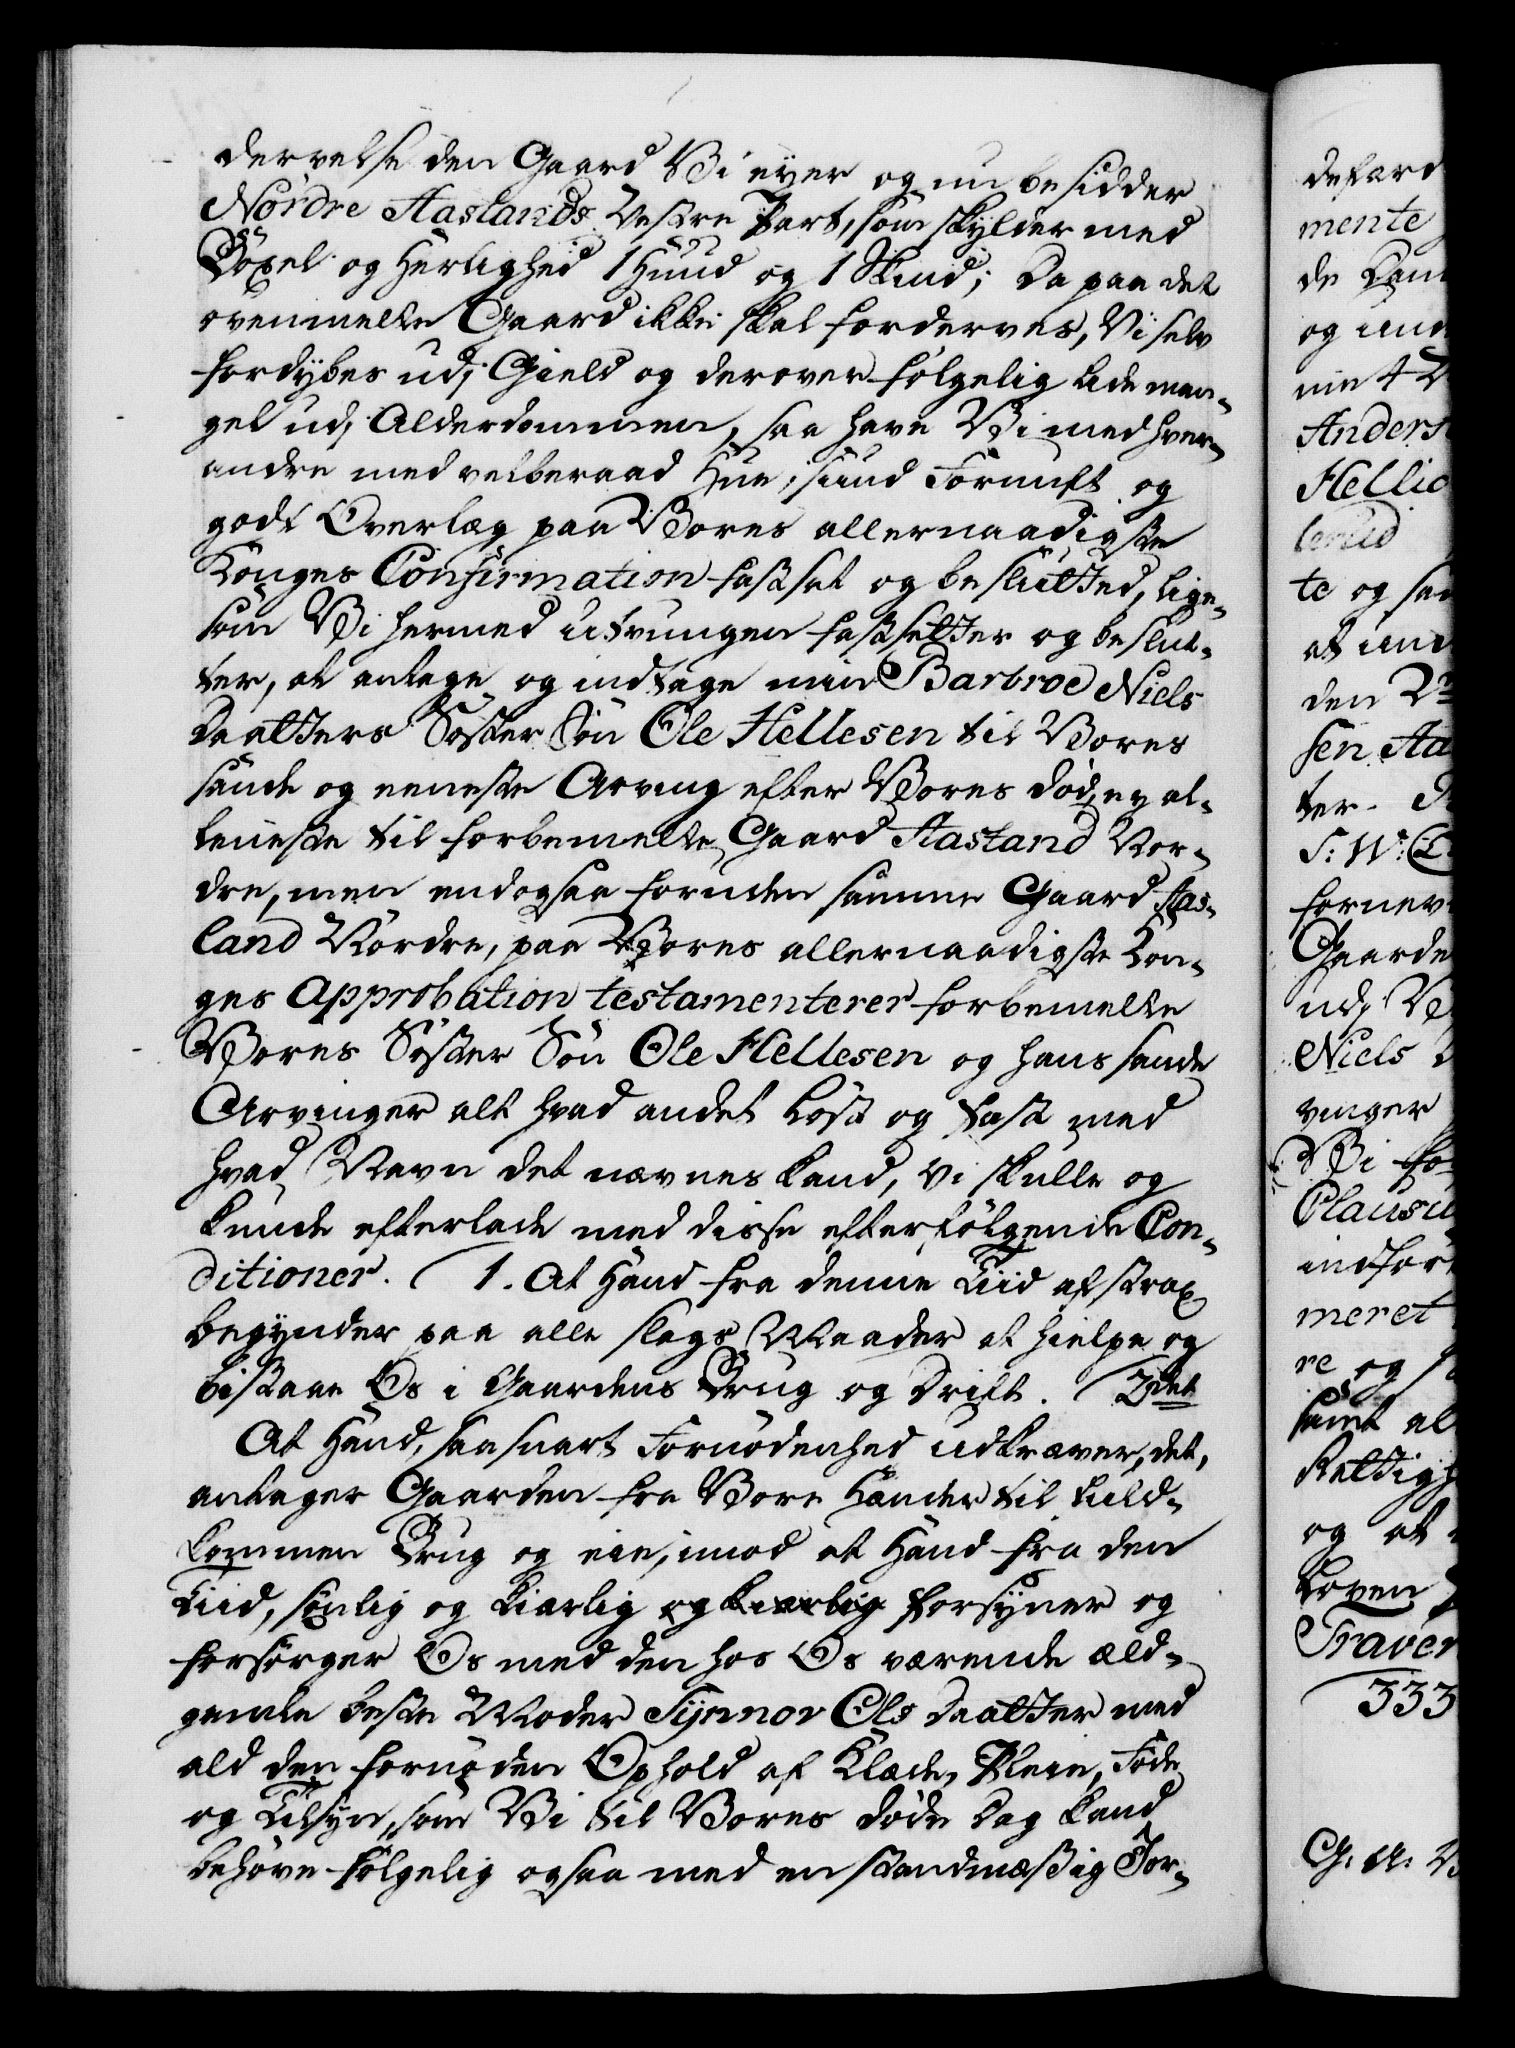 dervelse den Gaard Vi eyer og nu besidder
Nordre Aaslands Vestre Part, som skylder med
Böxel og Herlighed 1 Huud og 1 Skind; Da paa det
ovenmelte Gaard ikke skal forderves, Vi selv
fordybes udj Gield og derover følgelig lide man-
gel udj Alderdommen, saa have Vi med hver-
andre med velberaad Hue, sund Fornuft og
godt Overlæg paa Vores allernaadigste
Konges Confirmation fastsat og besluttet, lige-
som Vi hermed utvungen fastsetter og beslut-
ter, at antage og indtage min Barbroe Niels
Daatters Søster Søn Ole Hellesen til Vores
sande og eeneste Arving efter Vores død, ey al-
leneste til forbemelte Gaard Aasland Nor-
dre, men endogsaa foruden samme Gaard Aas-
land Nordre, paa Vores allernaadigste Kon-
ges Approbation testamenterer forbemelte
Vores Søster Søn Ole Hellesen og hans sande
Arvinger alt hvad andet Løst og Fast med
hvad Navn det nævnes kand, vi skulle og
kunde efterlade med disse efterfølgende Con-
ditioner. 1. At Hand fra denne Tiid af strax
begynder paa alle slags Maader at hielpe og
bistaae Os i Gaardens Brug og Drift. 2det
At Hand, saasnart Fornødenhed udkræver det,
antager Gaarden fra Vore Hænder til fuld-
kommen Brug og eie, imod at Hand fra den
Tiid, sønlig og kiærlig og kiærlig forsyner og
forsørger Os med den hos Os værende æld-
gamle beste Moder Synnov Ols Daatter med
ald den fornøden Ophold af Klæde, Pleie, Føde
og Tilsyn, som Vi til Vores døde Dag kand
behøve følgelig ogsaa med en standmæssig Jor-
defærd
mente
de
og
Anders
te og
den
sen Aa
ter.
Gaarde
Niels
vinger
Vi
Clausu
indfør
meret
re og
samt al
Rettigh
og at
Loven
Traven
333